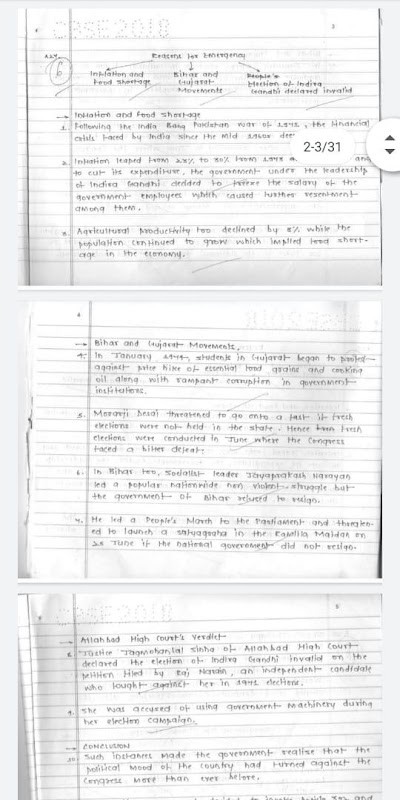 CBSE 2018
3
Ans
6
Reasons for Emergency
Inflation and
Food shortage
Bihar and
Gujarat
Movements
People's
Election of Indira
Gandhi declared invalid
→ Inflation and food shortage
1. Following the India Bang Pakistan war of 1971, the financial
crisis faced by India since the mid 1960s
2-3/31
2. Inflation leaped from 23% to 30% from 1973 and
to cut its expenditure, the government under the leadership
of Indira Gandhi decided to freeze the salary of the
government employees which caused further resentment
among them.
3. Agricultural productivity too declined by 8% while the
population continued to grow which implied food short-
age in the economy.
4
→ Bihar and Gujarat Movements.
4. In January 1974, students in Gujarat began to protest
against price hike of essential food grains and cooking
oil along with rampant corruption in government
institutions.
5. Morarji Desai threatened to go onto a fast if fresh
elections were not held in the state. Hence fresh
elections were conducted in June where the Congress
faced a bitter defeat.
6. In Bihar too, socialist leader Jayaprakash Narayan
led a popular nationwide non violent struggle but
the government of Bihar refused to resign.
7. He led a People's March to the Parliament and threaten-
ed to launch a satyagraha in the Ramlila Maidan on
25 June if the national government did not resign.
CBSE 2018
5
→ Allahbad High Court's Verdict
8. Justice Jagmohanlal Sinha of Allahbad High Court
declared the election of Indira Gandhi invalid on the
petition filed by Raj Narain, an independent candidate
who fought against her in 1971 elections.
9. She was accused of using government machinery during
her election campaign.
→ CONCLUSION
10. Such instances made the government realise that the
political mood of the country had turned against the
Congress more than ever before.